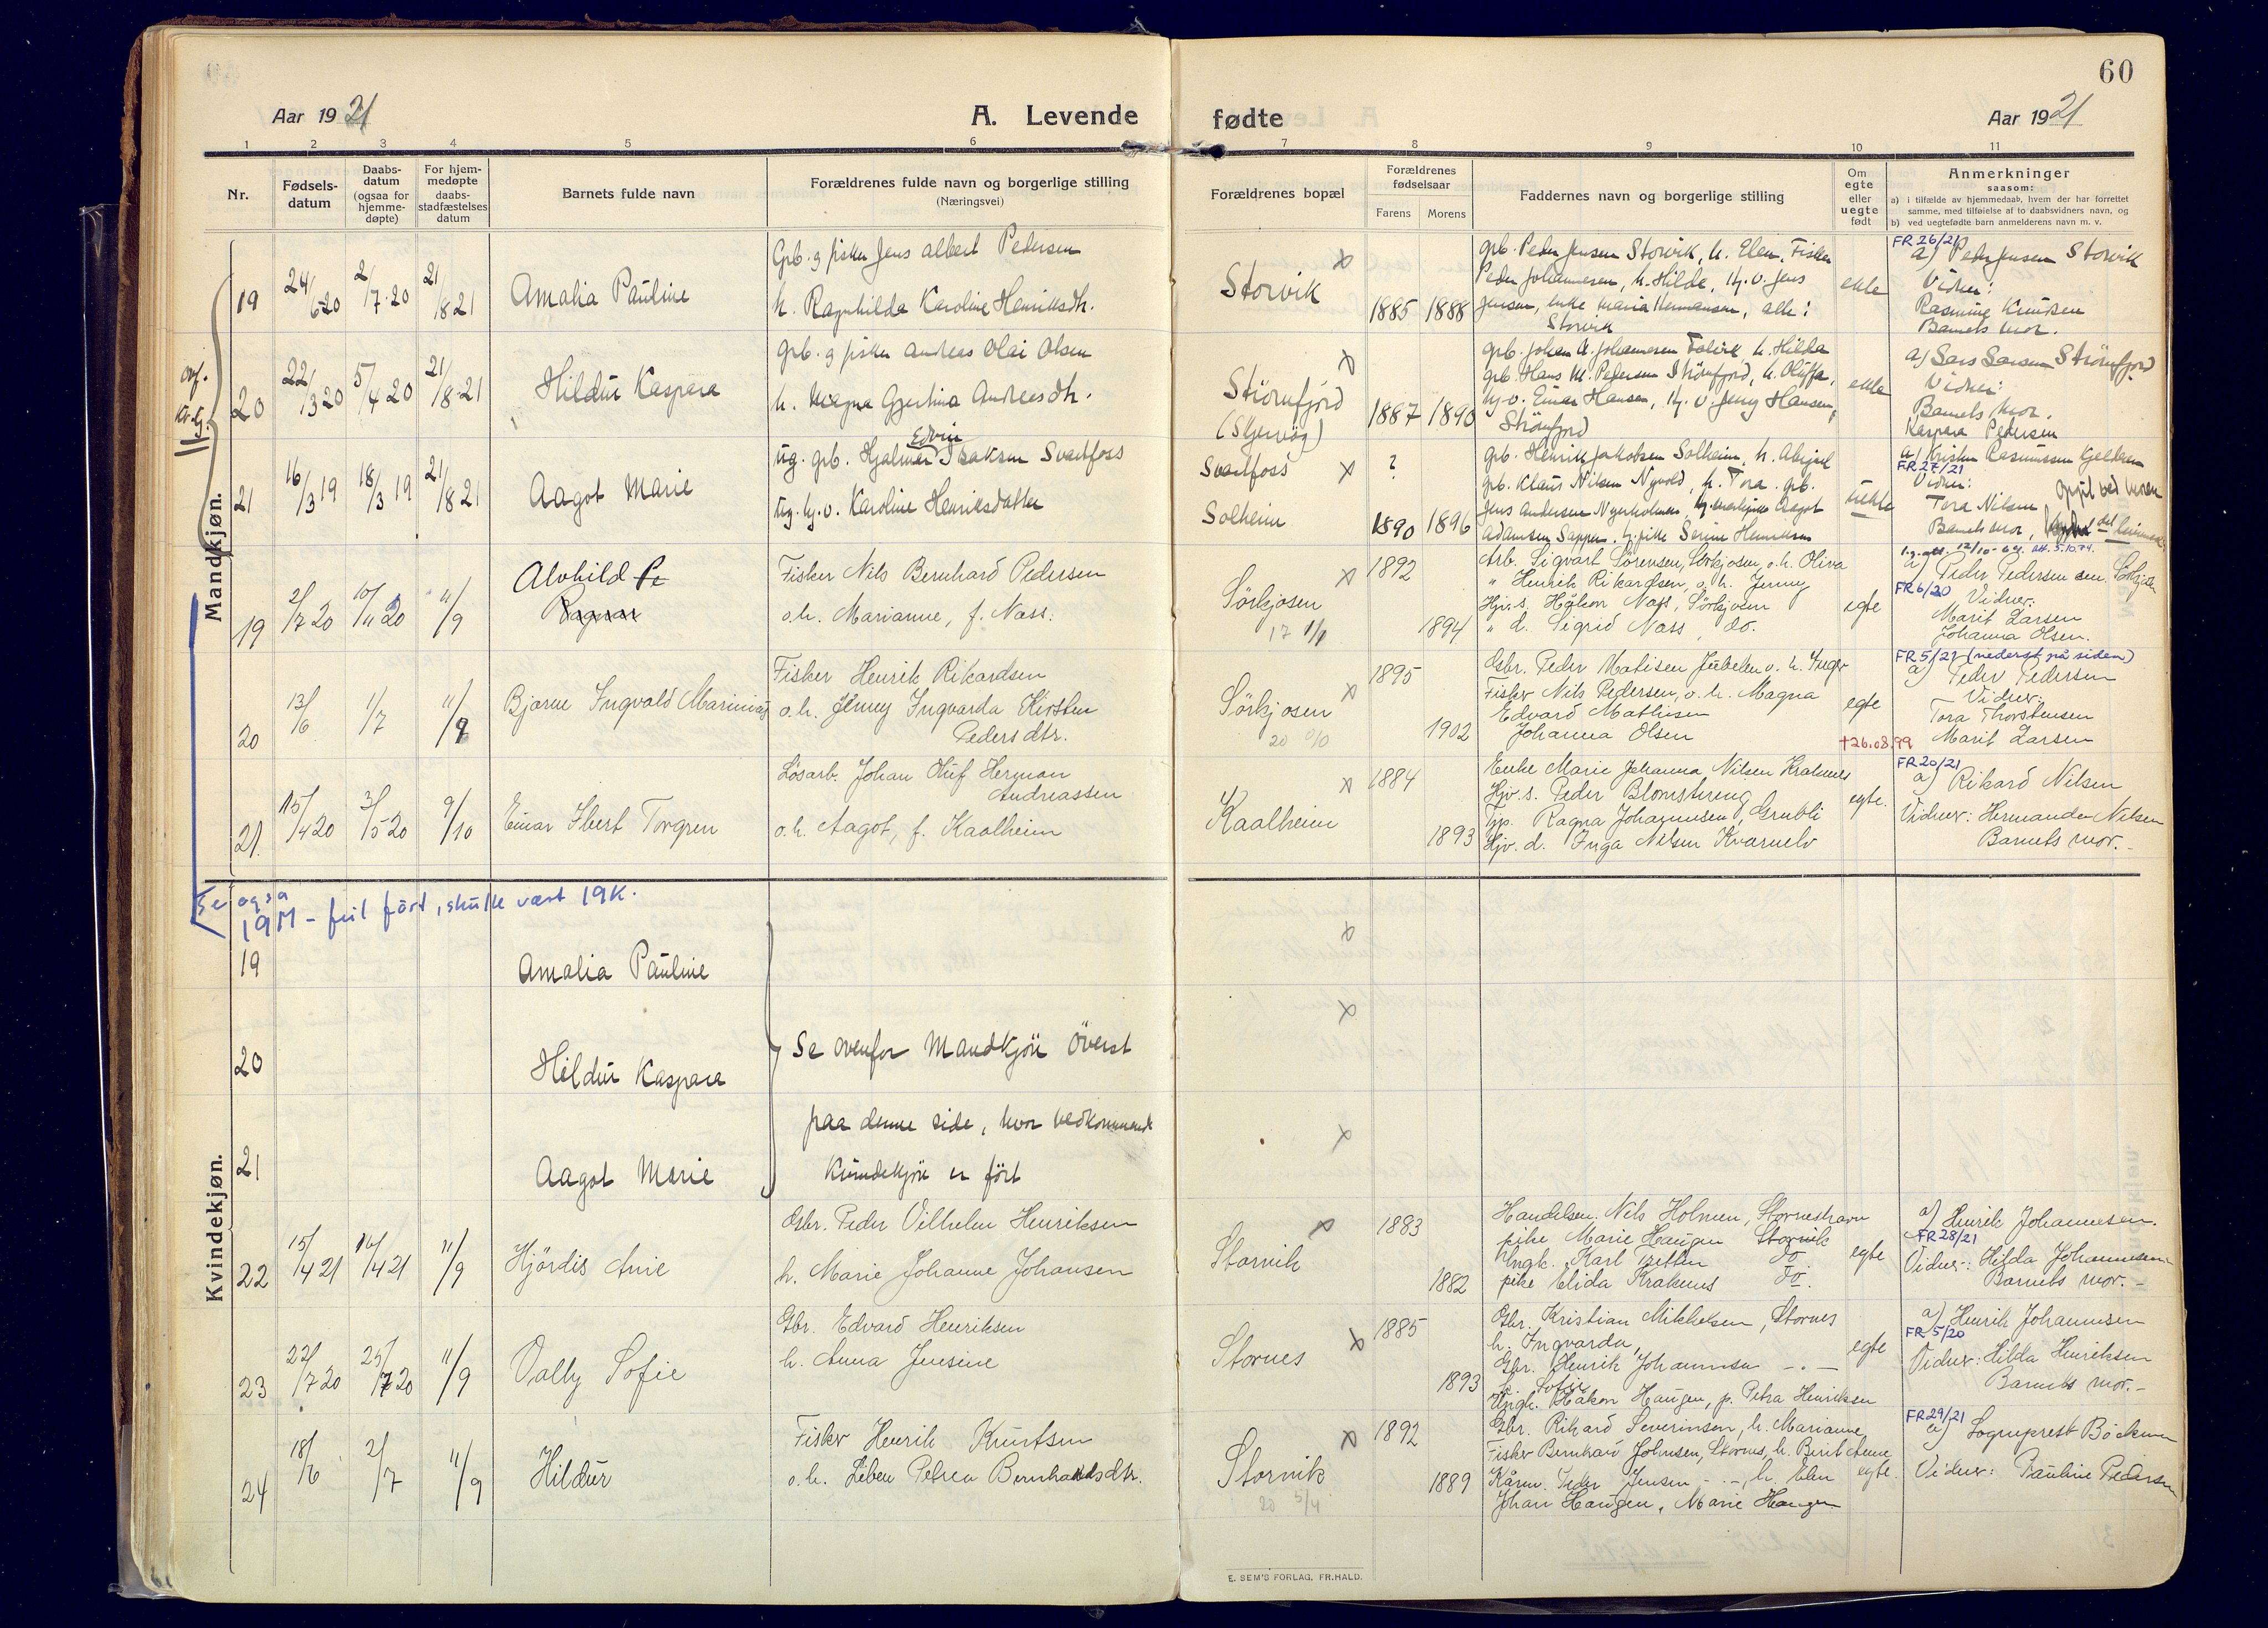 60
Aar 1921
A. Levende
fødte
Aar 1921
1 2 3 4 5 6 7 8 9 10 11
Nr.
Fødsels-
datum
Daabs-
datum
(ogsaa for
hjemme-
døpte)
For hjem-
medøpte
daabs-
stadfæstelses
datum
Barnets fulde navn
Forældrenes fulde navn og borgerlige stilling
(Næringsvei)
Forældrenes bopæl
Forældrenes
fødselsaar
Farens Morens
Faddernes navn og borgerlige stilling
Om
egte
eller
uegte
født
Anmerkninger
saasom:
a) i tilfælde av hjemmedaab, hvem der har forrettet
samme, med tilføielse af to daabsvidners navn, og
b) ved uegtefødte barn anmelderens navn m. v.
Mandkjøn.
19
24/6 20
2/7 20
21/8 21
Amalia Pauline
Grb. g fisker Jens Albert Pedersen
h. Ragnhilda Karoline Henriksdtr.
Storvik
1885 1888
grb. Peder Jensen Storvik, h. Elen, Fisker
Peder Johannesen, h. Hilda, Uy. v. Jens
Jensen, enke Maria Hermansen, alle:
Storvik
ekte
FR 26/21
a) Peder Jensen Storvik
Vidner:
Rasmine Knudsen
Barnets mor.
20
22/3 20
5/4 20
21/8 21
Hildur Kaspara
Grb. g fisker Andreas Olai Olsen
h. Magna Gjertina Andreasdtr.
Strömfjord
(Skjervøy)
1887 1890
grb. Johan H. Johannesen h. Hilda
grb. Hans M. Pedersen Strömfjord, h. Oluffa,
Uy. v. Einar Hansen, Uy. v. Jenny Hansen,
Strömfjord
ekte
a) Lars Larsen Strömfjord
Vidner:
Barnets mor.
Kaspara Pedersen
21
16/3 19
18/3 19
21/8 21
Aagot Marie
Edvin
ug. grb. Hjalmar Isaksen Svartfoss
ug. Uy. v. Karoline Henriksdatter
Svartfoss
Solheim
?
1890 1896
grb. Henrik Jakobsen Solheim, h. Abigael
grb. Klaus Nilsen Nyvold, h. Tora. grb.
Jens Andersen Nyerholmen, Aagot
Adamsen Sappen, pike Serine Henriksen
uekte
a) Kristen Rasmussen Gjeldsen
FR 27/21
Vidner:
Tora Nilsen
Barnets mor,
opgit ved moren
19
2/7 20
10/11 20
11/9
Alvhild P.
Ragnar
Fisker Nils Bernhard Pedersen
o. h. Marianne, f. Næss.
Sørkjosen
17 1/1
1892
1894
Arb. Sigvart Sørensen, Sørkjosen, o. h. Oliva
" Henrik Rikardsen, o. h. Jenny
Hjv. s. Håkon Næss, Sørkjosen
" d. Sigrid Næss, do.
egte
a) Peder Pedersen sen. Sørkjosen
FR 6/20
Vidner:
Marit Larsen
Johanna Olsen.
20
13/6
1/7
11/9
Bjarne Ingvald Marinius
Fisker Henrik Rikardsen
o. h. Jenny Ingvarda Kirsten
Pedersdtr.
Sørkjosen
1895
1902
Gbr. Peder Mathisen Jubelen o. h. Inger
Fisker Nils Pedersen, o. h. Magna
Edvard Mathisen
Johanna Olsen
egte
†26.08.99
FR 5/21 (nederst på siden)
a) Peder Pedersen
Vidner:
Tora Thorstensen
Marit Larsen
21.
15/4 20
3/5 20
9/10
Einar Ibert Torgren
Løsarb. Johan Oluf Herman
Andreassen
o. h. Aagot, f. Kaalheim
Kaalheim
1884
1893
Enke Marie Johanna Nilsen Kraknes
Hjv. s. Peder Blomstereng
Tjp. Ragna Johannesen, Grubli
Hjv. d. Inga Nilsen Kvarnelv
egte.
FR 20/21
a) Rikard Nilsen
Vidner: Hermanda Nilsen
Barnets mor.-
Kvindekjøn.
Se også
19M - feil ført, skulle vært 19K.
19
Amalia Pauline
20
Hildur Kaspara
21
Aagot Marie
Se ovenfor Mandkjön Överst
paa denne side, hvor vedkommende
Kvindekjön er fört
22
15/4 21
16/4 21
11/9
Hjördis Anie
Gbr. Peder Vilhelm Henriksen
h. Marie Johanne Johansen
Storvik
1883
1882
Handelsm. Nils Holmen, Storneshavn
pike Marie Haugen Storvik
Ungk. Karl Zetten do
pike Elida Kraknes do.
egte
a) Henrik Johannesen.
FR 28/21
Vidner: Hilda Johannesen
Barnets mor.-
23
22/7 20
25/7 20
11/9
Vally Sofie
Gbr. Edvard Henriksen
h. Anna Jensine
Stornes
1885
1893
Gbr. Kristian Mikkelsen, Stornes
h. Ingvarda,
Gbr. Henrik Johannesen - . -
h. Sofie
Ungk. Håkon Haugen, p. Petra Henriksen
egte
a) Henrik Johannesen
FR 5/20
Vidner: Hilda Henriksen
Barnets mor.-
24
18/6
2/7
11/9
Hildur
Fisker Henrik Knutsen
o. h. Liben Petrea Bernhardsdtr.
Storvik
20 5/4
1892
1889
Gbr. Rikard Severinsen, h. Marianne
Fisker Bernhard Johnsen, Stornes, h. Berit Anne
Kårm. Peder Jensen - . -, h. Elen
Johan Haugen, Marie Haugen
egte.
FR 29/21
a) Sogneprest Böckman
Vidner: Pauline Pedersen
E. SEM'S FORLAG, FR.HALD.